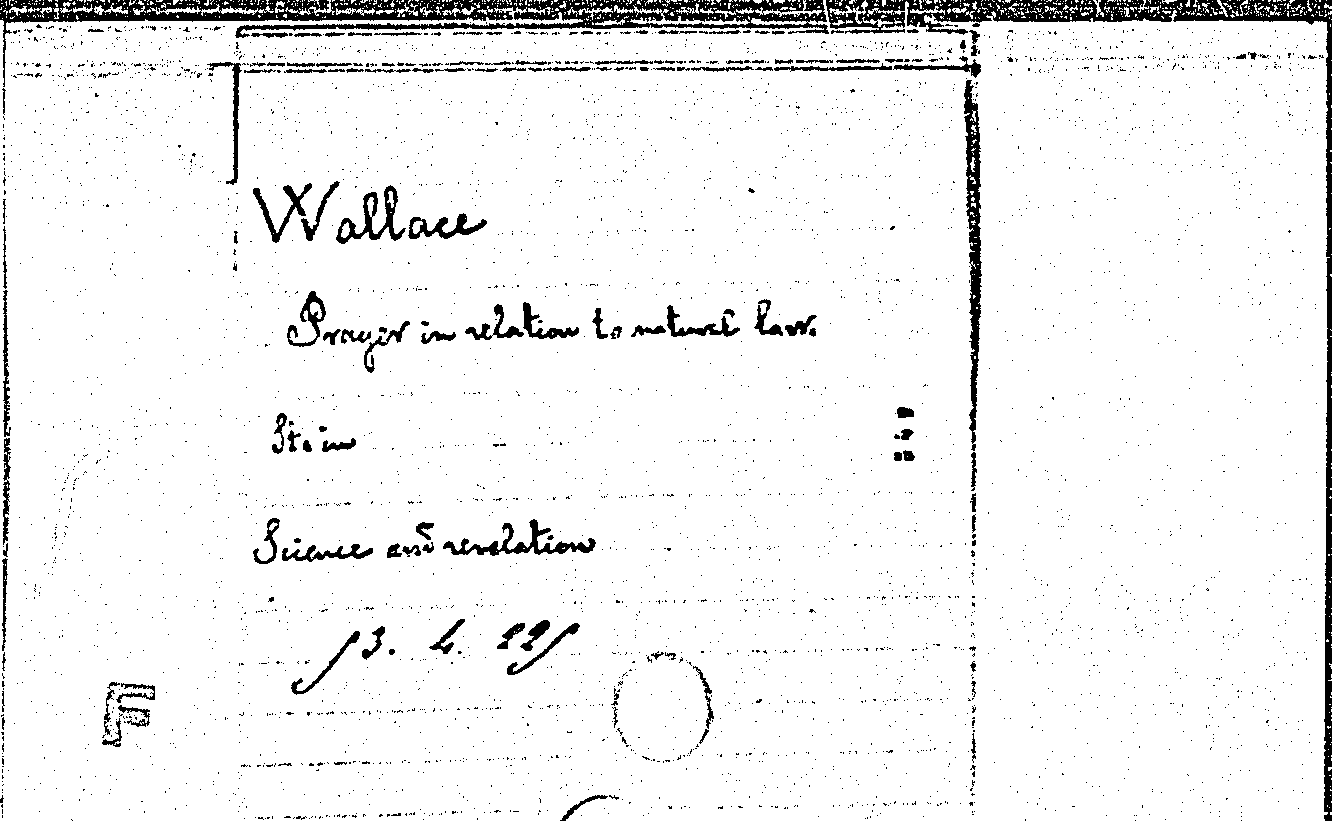 Wallace
Prayer in relation to natural law.
Stein
Science and revelation
3. 4. 22
F